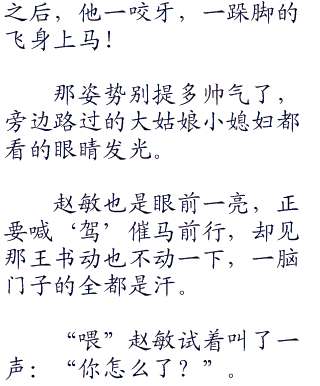 之后，他一咬牙，一跺脚的
飞身上马！
那姿势别提多帅气了，
旁边路过的大姑娘小媳妇都
看的眼睛发光。
赵敏也是眼前一亮，正
要喊‘驾’催马前行，却见
那王书动也不动一下，一脑
门子的全都是汗。
“喂”赵敏试着叫了一
声：“你怎么了？”。